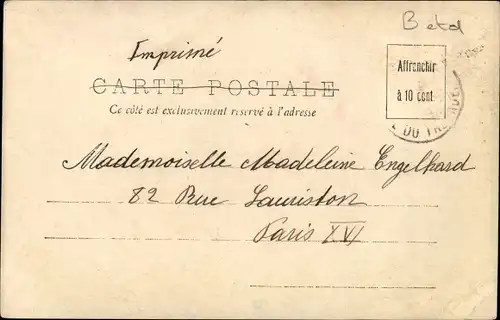 Betd
Imprimé
Affranchir
à 10 cent
CARTE POSTALE
Ce côté est exclusivement reservé à l'adresse
DU TR
Mademoiselle Madeleine Engelhard
82 Rue Lauriston
Paris XVI